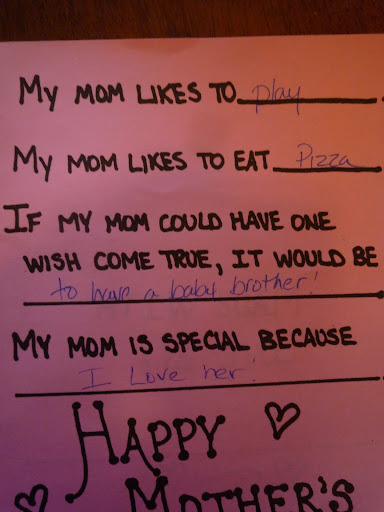 My MOM LIKES TO play.
My MOM LIKES TO EAT Pizza
IF MY MOM COULD HAVE ONE
WISH COME TRUE, IT WOULD BE
to have a baby brother!
MY MOM IS SPECIAL BECAUSE
I Love her!
HAPPY
MOTHER'S